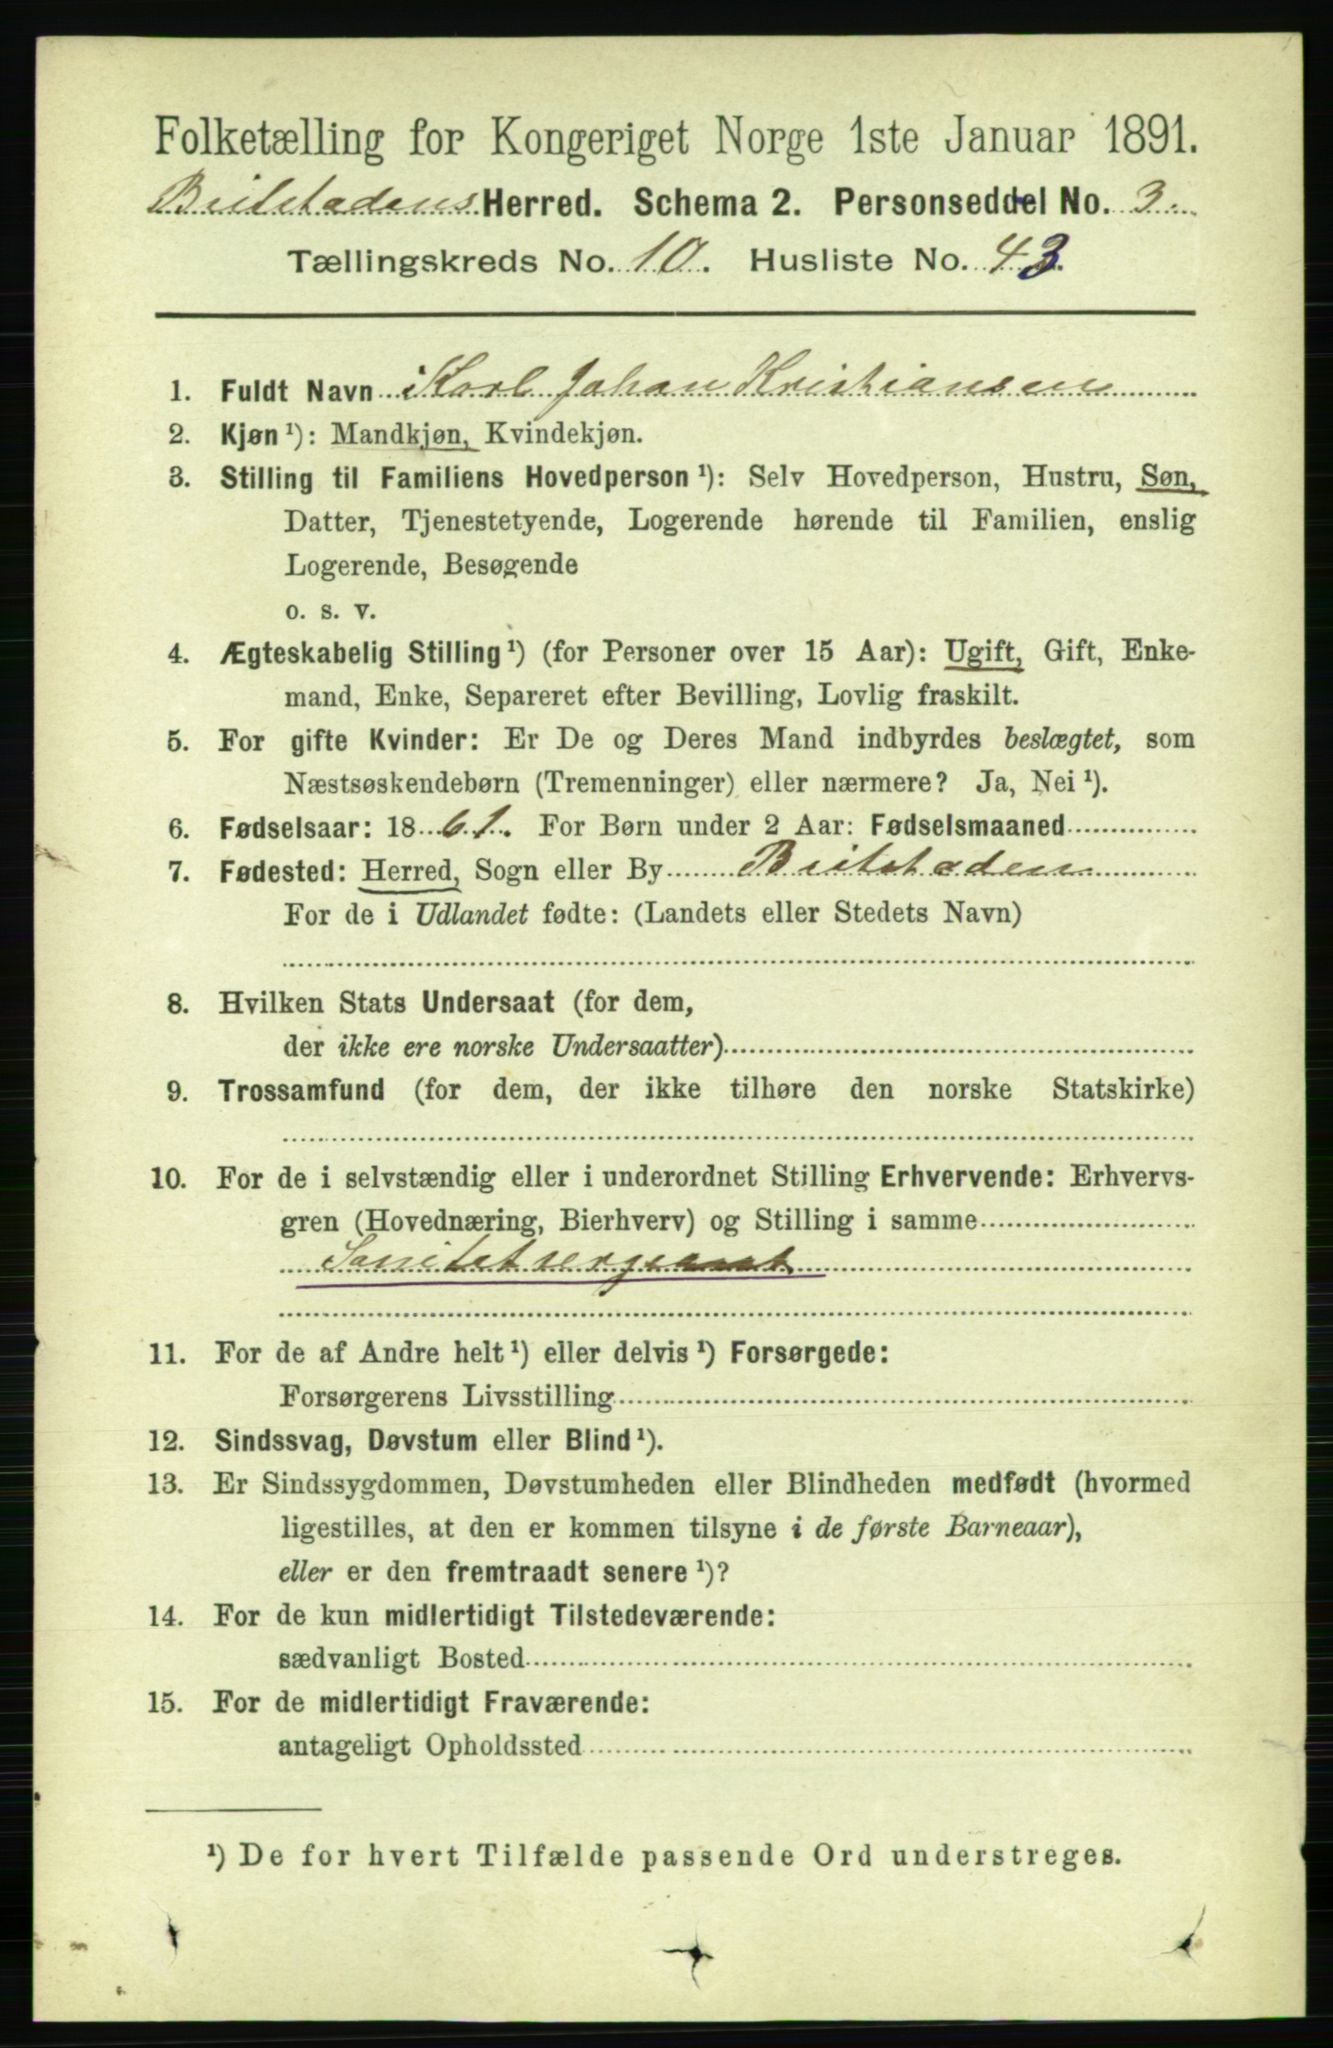 Folketælling for Kongeriget Norge 1ste Januar 1891.
Beitstadens Herred. Schema 2. Personseddel No. 3.
Tællingskreds No. 10. Husliste No. 43.
1. Fuldt Navn Karl Johan Kristiansen
2. Kjøn ¹): Mandkjøn, Kvindekjøn.
3. Stilling til Familiens Hovedperson ¹): Selv Hovedperson, Hustru, Søn,
Datter, Tjenestetyende, Logerende hørende til Familien, enslig
Logerende, Besøgende
o. s. v.
4. Ægteskabelig Stilling ¹) (for Personer over 15 Aar): Ugift, Gift, Enke-
mand, Enke, Separeret efter Bevilling, Lovlig fraskilt.
5. For gifte Kvinder: Er De og Deres Mand indbyrdes beslægtet, som
Næstsøskendebørn (Tremenninger) eller nærmere? Ja, Nei ¹).
6. Fødselsaar: 1861. For Børn under 2 Aar: Fødselsmaaned
7. Fødested: Herred, Sogn eller By Beitstaden
For de i Udlandet fødte: (Landets eller Stedets Navn)
8. Hvilken Stats Undersaat (for dem,
der ikke ere norske Undersaatter)
9. Trossamfund (for dem, der ikke tilhøre den norske Statskirke)
10. For de i selvstændig eller i underordnet Stilling Erhvervende: Erhvervs-
gren (Hovednæring, Bierhverv) og Stilling i samme
Sanitetsergeant
11. For de af Andre helt ¹) eller delvis ¹) Forsørgede:
Forsørgerens Livsstilling
12. Sindssvag, Døvstum eller Blind ¹).
13. Er Sindssygdommen, Døvstumheden eller Blindheden medfødt (hvormed
ligestilles, at den er kommen tilsyne i de første Barneaar),
eller er den fremtraadt senere ¹)?
14. For de kun midlertidigt Tilstedeværende:
sædvanligt Bosted
15. For de midlertidigt Fraværende:
antageligt Opholdssted
¹) De for hvert Tilfælde passende Ord understreges.